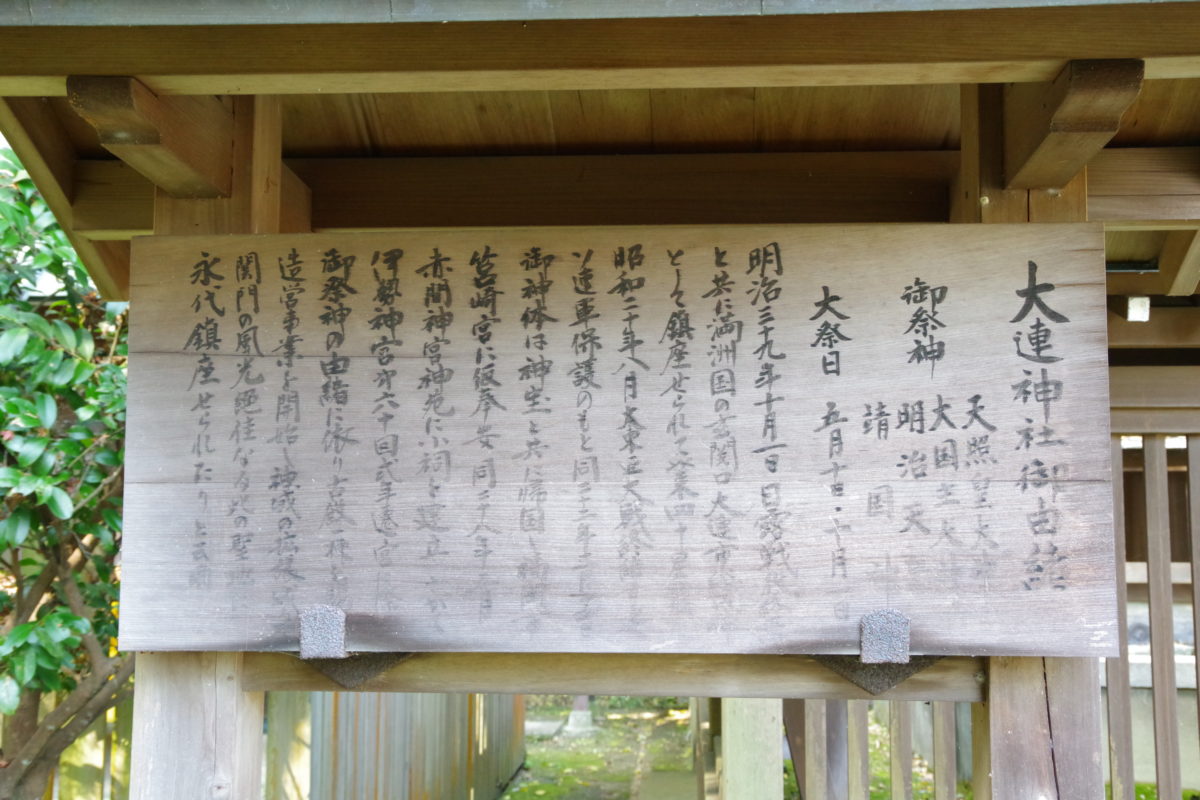 大連神社御由緒
天照皇大神
御祭神 大国主大神
明治天
靖国神
大祭日 五月十日・十月 日
明治三十九年十月一日日露戦
と共に満洲国の玄関口大連市
として鎮座せられて以来四十
昭和二十年八月大東亜大戦終
ソ連軍保護のもと同二十二年
御神体は神宝と共に帰国し
筥崎宮に仮奉安同二十八年 月
赤間神宮神苑に小祠を建立
伊勢神宮第六十回式年遷宮
御祭神の由緒に依り古殿一棟
造営事業を開始し神域の拡
関門の風光絶佳なる此の聖地に
永代鎮座せられたりと云爾